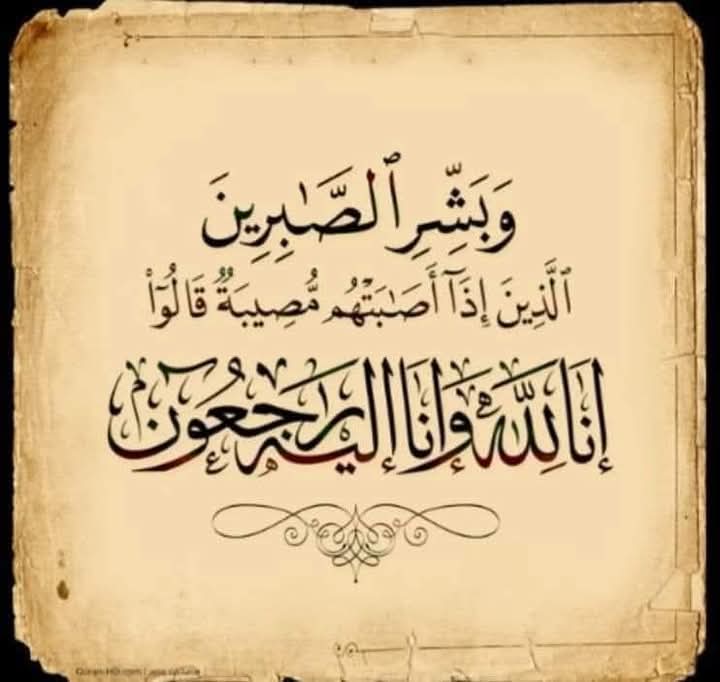 وَبَشِّرِ ٱلصَّـٰبِرِينَ
ٱلَّذِينَ إِذَآ أَصَـٰبَتْهُم مُّصِيبَةٌ قَالُوٓا۟
إِنَّا لِلَّهِ وَإِنَّا إِلَيْهِ رَاجِعُونَ